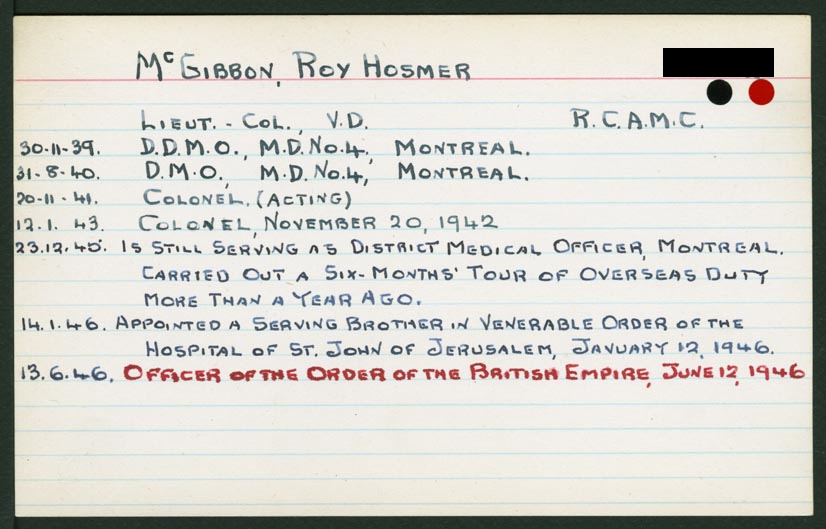 McGIBBON, ROY HOSMER
LIEUT. - COL., V.D. R.C.A.M.C.
30-11-39. D.D.M.O., M.D. No. 4, MONTREAL.
31-8-40. D.M.O., M.D. No. 4, MONTREAL.
20-11-41. COLONEL. (ACTING)
12.1.43. COLONEL, NOVEMBER 20, 1942
23.12.45. IS STILL SERVING AS DISTRICT MEDICAL OFFICER, MONTREAL.
CARRIED OUT A SIX-MONTHS' TOUR OF OVERSEAS DUTY
MORE THAN A YEAR AGO.
14.1.46. APPOINTED A SERVING BROTHER IN VENERABLE ORDER OF THE
HOSPITAL OF ST. JOHN OF JERUSALEM, JANUARY 12, 1946.
13.6.46. OFFICER OF THE ORDER OF THE BRITISH EMPIRE, JUNE 12, 1946